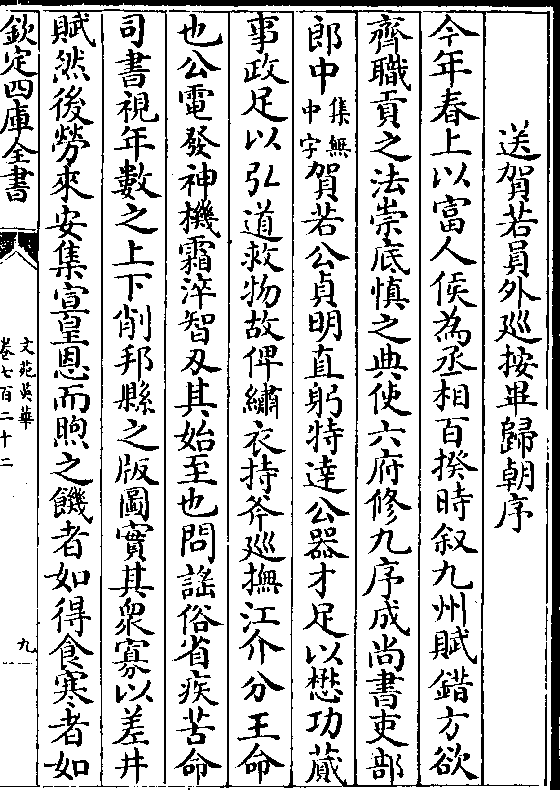 送賀若員外巡按畢歸朝序
今年春上以富人侯為丞相百揆時叙九州賦錯方欲
齊職貢之法崇底慎之典使六府修九序成尚書吏部
郎中集無中字賀若公貞明直躬特達公器才足以懋功蕆
事政足以弘道救物故俾繡衣持斧巡撫江介分王命
也公電發神機霜淬智刃其始至也問謡俗省疾苦命
司書視年數之上下削邦縣之版圖實其衆寡以差井
賦然後勞來安集宣皇恩而煦之饑者如得食寒者如
欽定四庫全書
文苑英華
卷七百二十二
九